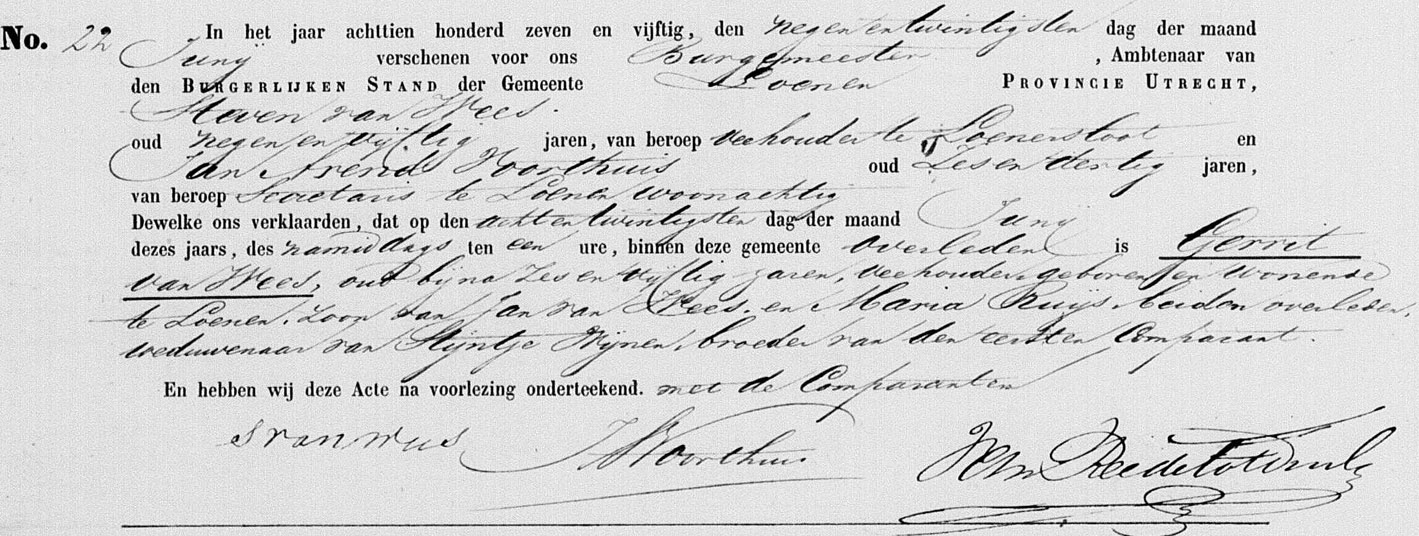 No. 22 In het jaar achttien honderd zeven en vijftig, den negen en twintigsten dag der maand
Junij verschenen voor ons Burgemeester , Ambtenaar van
den BURGERLIJKEN STAND der Gemeente Loenen PROVINCIE UTRECHT,
Steven van Wees.
oud negen en vijftig jaren, van beroep veehouder te Loenersloot en
Jan Arend Voorthuis oud Zes en dertig jaren,
van beroep Secretaris te Loenen woonachtig
Dewelke ons verklaarden, dat op den acht en twintigsten dag der maand Junij
dezes jaars, des namiddags ten een ure, binnen deze gemeente overleden is Gerrit
van Wees, oud bijna Zes en vijftig jaren, veehouder, geboren en wonende
te Loenen, Zoon van Jan van Wees, en Maria Ruijs, beiden overleden,
weduwenaar van Stijntje Wijnen, broeder van den eersten Comparant.
En hebben wij deze Acte na voorlezing onderteekend. met de Comparanten
S van Wees JAVoorthuis